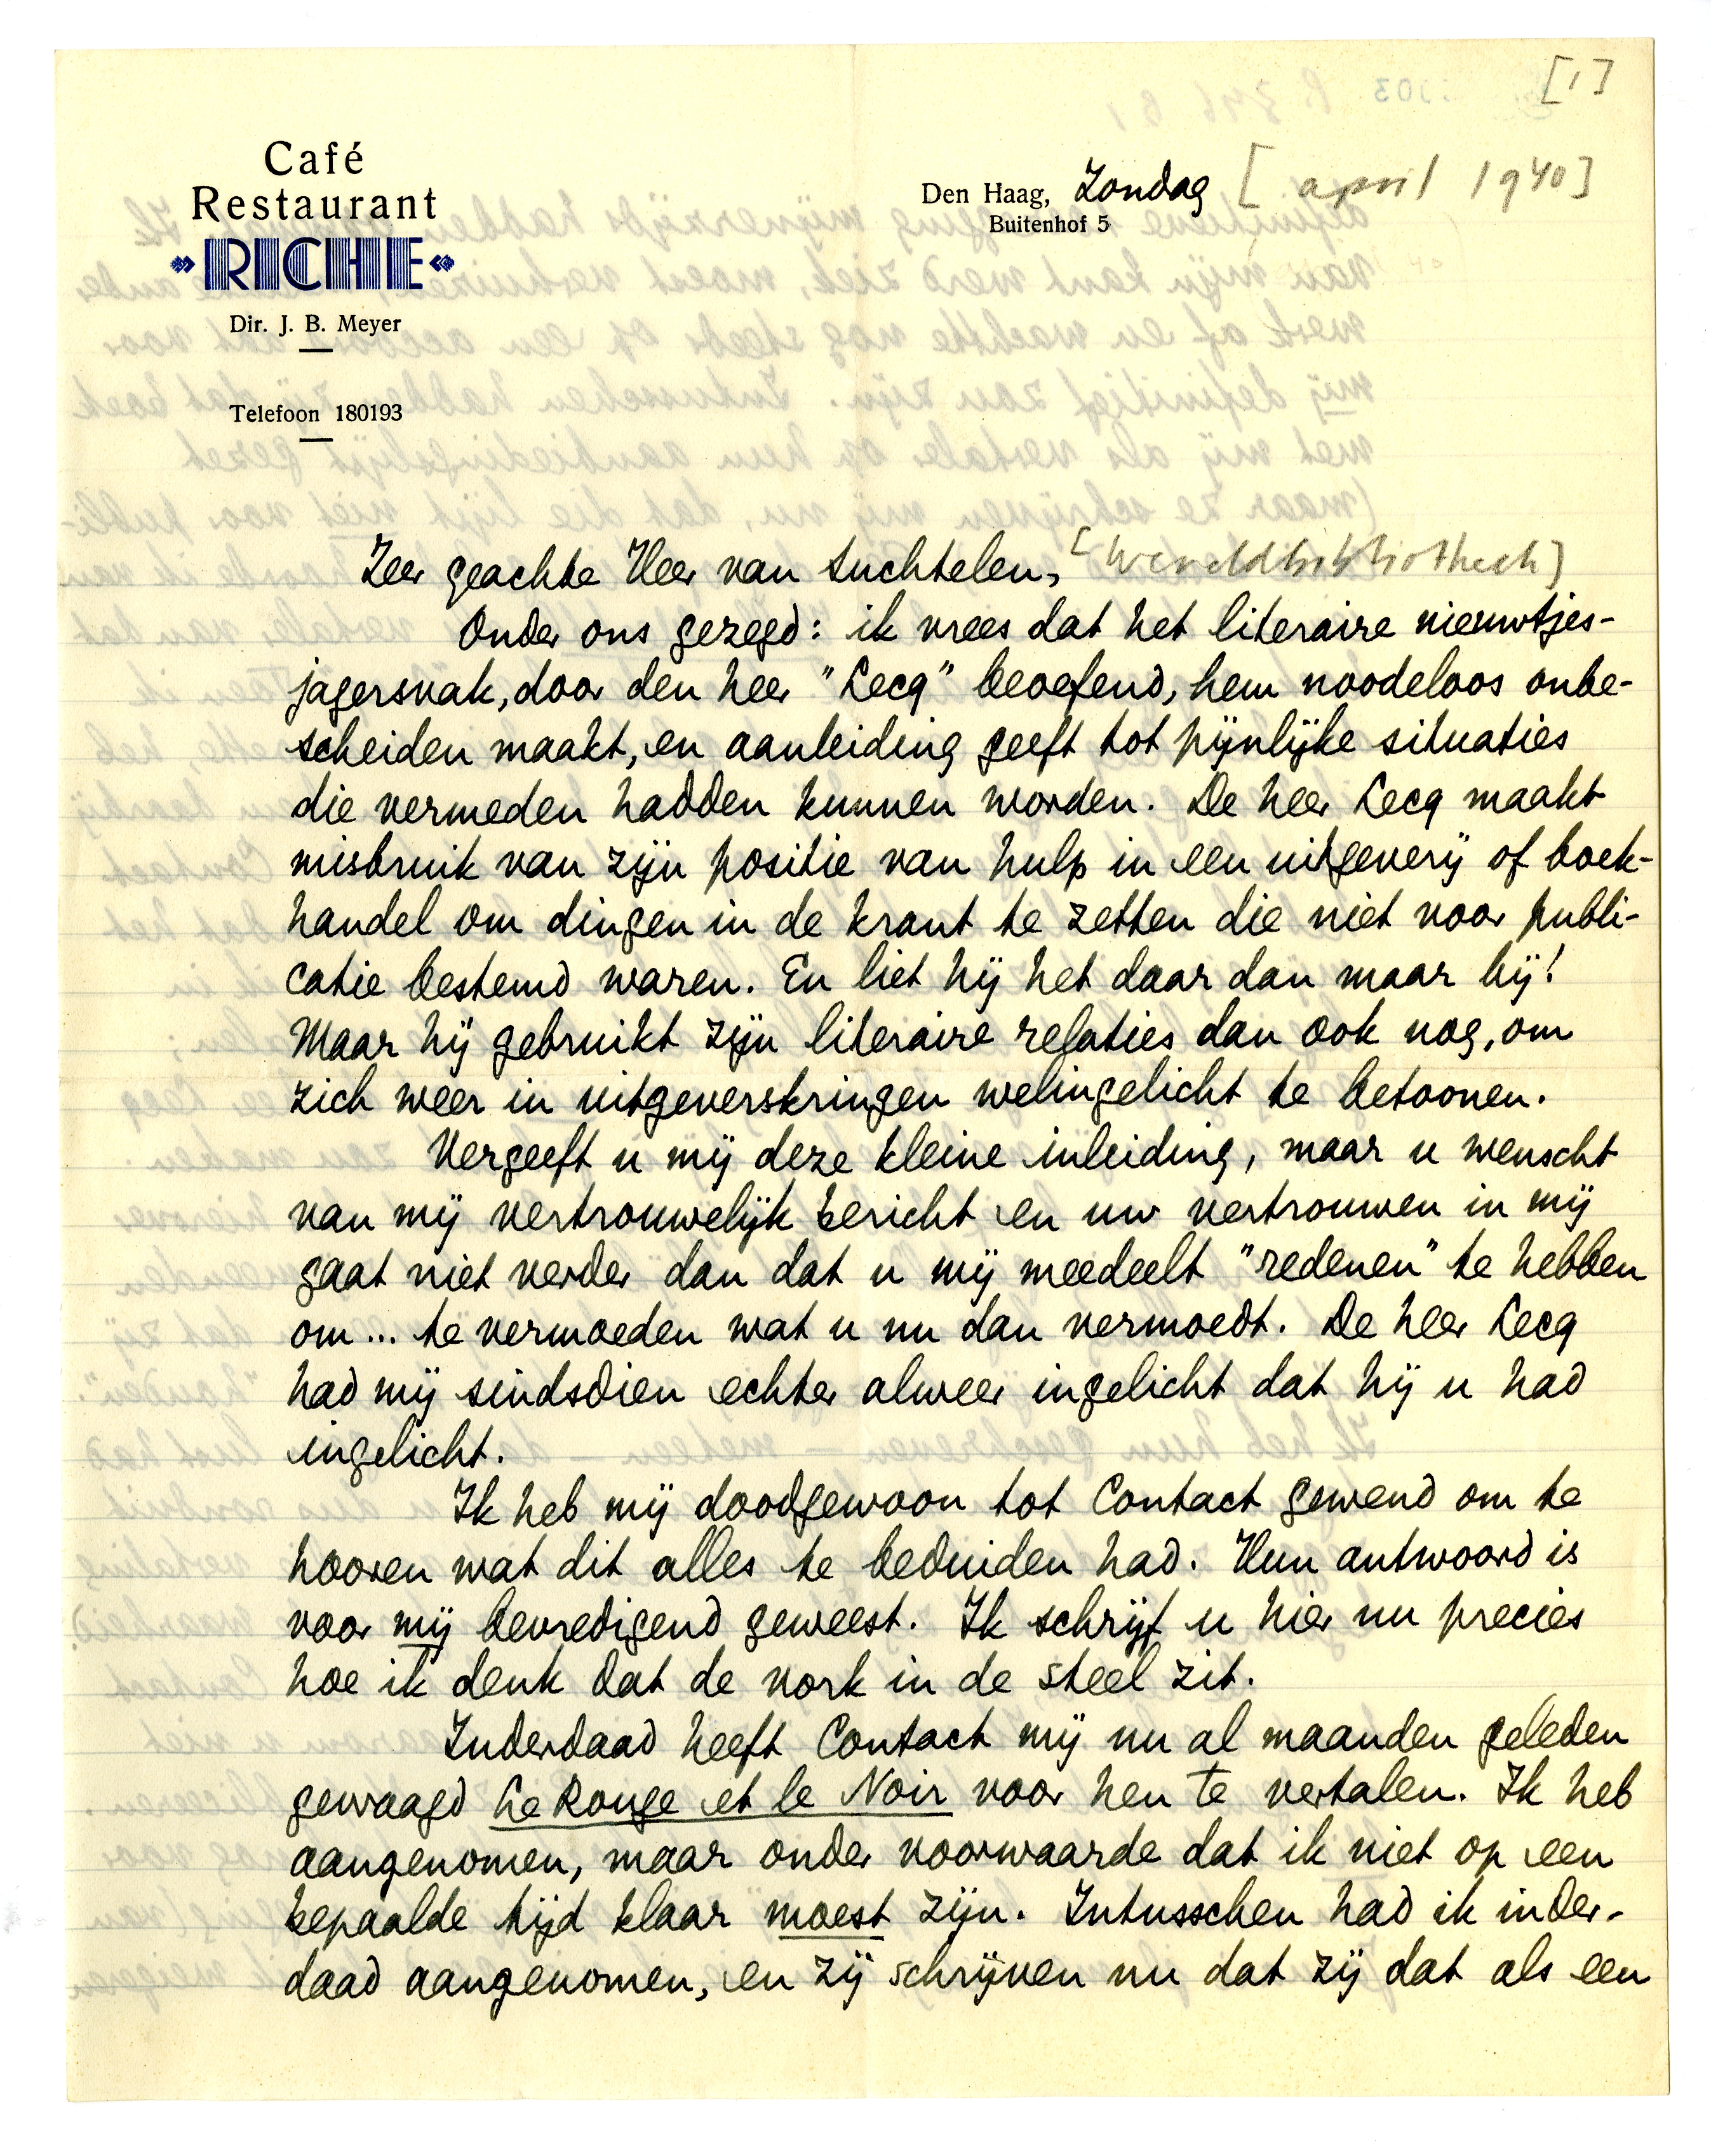 [1]
Café
Restaurant
»RICHE«
Dir. J. B. Meyer
Telefoon 180193
Den Haag, Zondag [april 1940]
Buitenhof 5
Zeer geachte Heer van Suchtelen, [Wereldbibliotheek]
Onder ons gezegd: ik vrees dat het literaire nieuwtjes-
jagersvak, door den heer "Lecq" beoefend, hem noodeloos onbe-
scheiden maakt, en aanleiding geeft tot pijnlijke situaties
die vermeden hadden kunnen worden. De heer Lecq maakt
misbruik van zijn positie van hulp in een uitgeverij of boek-
handel om dingen in de krant te zetten die niet voor publi-
catie bestemd waren. En liet hij het daar dan maar bij!
Maar hij gebruikt zijn literaire relaties dan ook nog, om
zich weer in uitgeverskringen welingelicht te betoonen.
Vergeeft u mij deze kleine inleiding, maar u wenscht
van mij vertrouwelijk bericht en uw vertrouwen in mij
gaat niet verder dan dat u mij meedeelt "redenen" te hebben
om... te vermoeden wat u nu dan vermoedt. De heer Lecq
had mij sindsdien echter alweer ingelicht dat hij u had
ingelicht.
Ik heb mij doodgewoon tot Contact gewend om te
hooren wat dit alles te beduiden had. Hun antwoord is
voor mij bevredigend geweest. Ik schrijf u hier nu precies
hoe ik denk dat de vork in de steel zit.
Inderdaad heeft Contact mij nu al maanden geleden
gevraagd Le Rouge et le Noir voor hen te vertalen. Ik heb
aangenomen, maar onder voorwaarde dat ik niet op een
bepaalde tijd klaar moest zijn. Intusschen had ik inder-
daad aangenomen, en zij schrijven nu dat zij dat als een